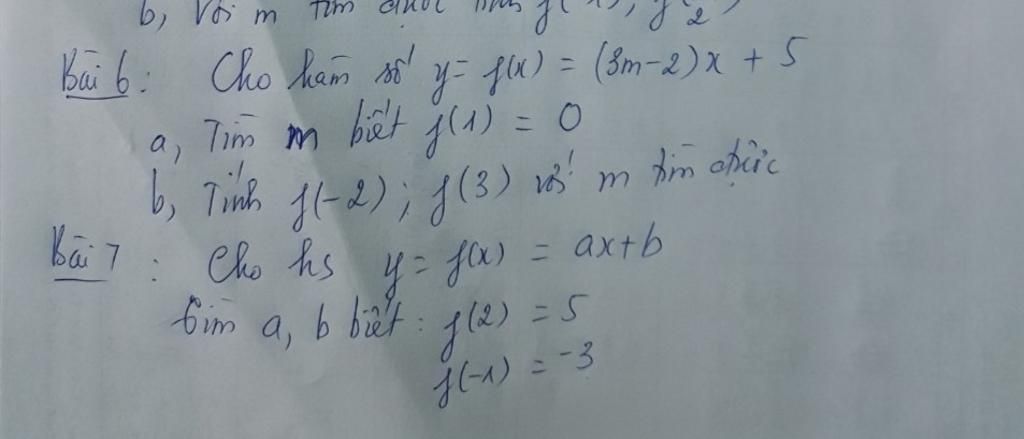 b, Với m tìm được tính f(
Bài 6: Cho hàm số y = f(x) = (3m-2)x + 5
a, Tìm m biết f(1) = 0
b, Tính f(-2); f(3) với m tìm được
Bài 7: Cho hs y = f(x) = ax+b
tìm a, b biết: f(2) = 5
f(-1) = -3